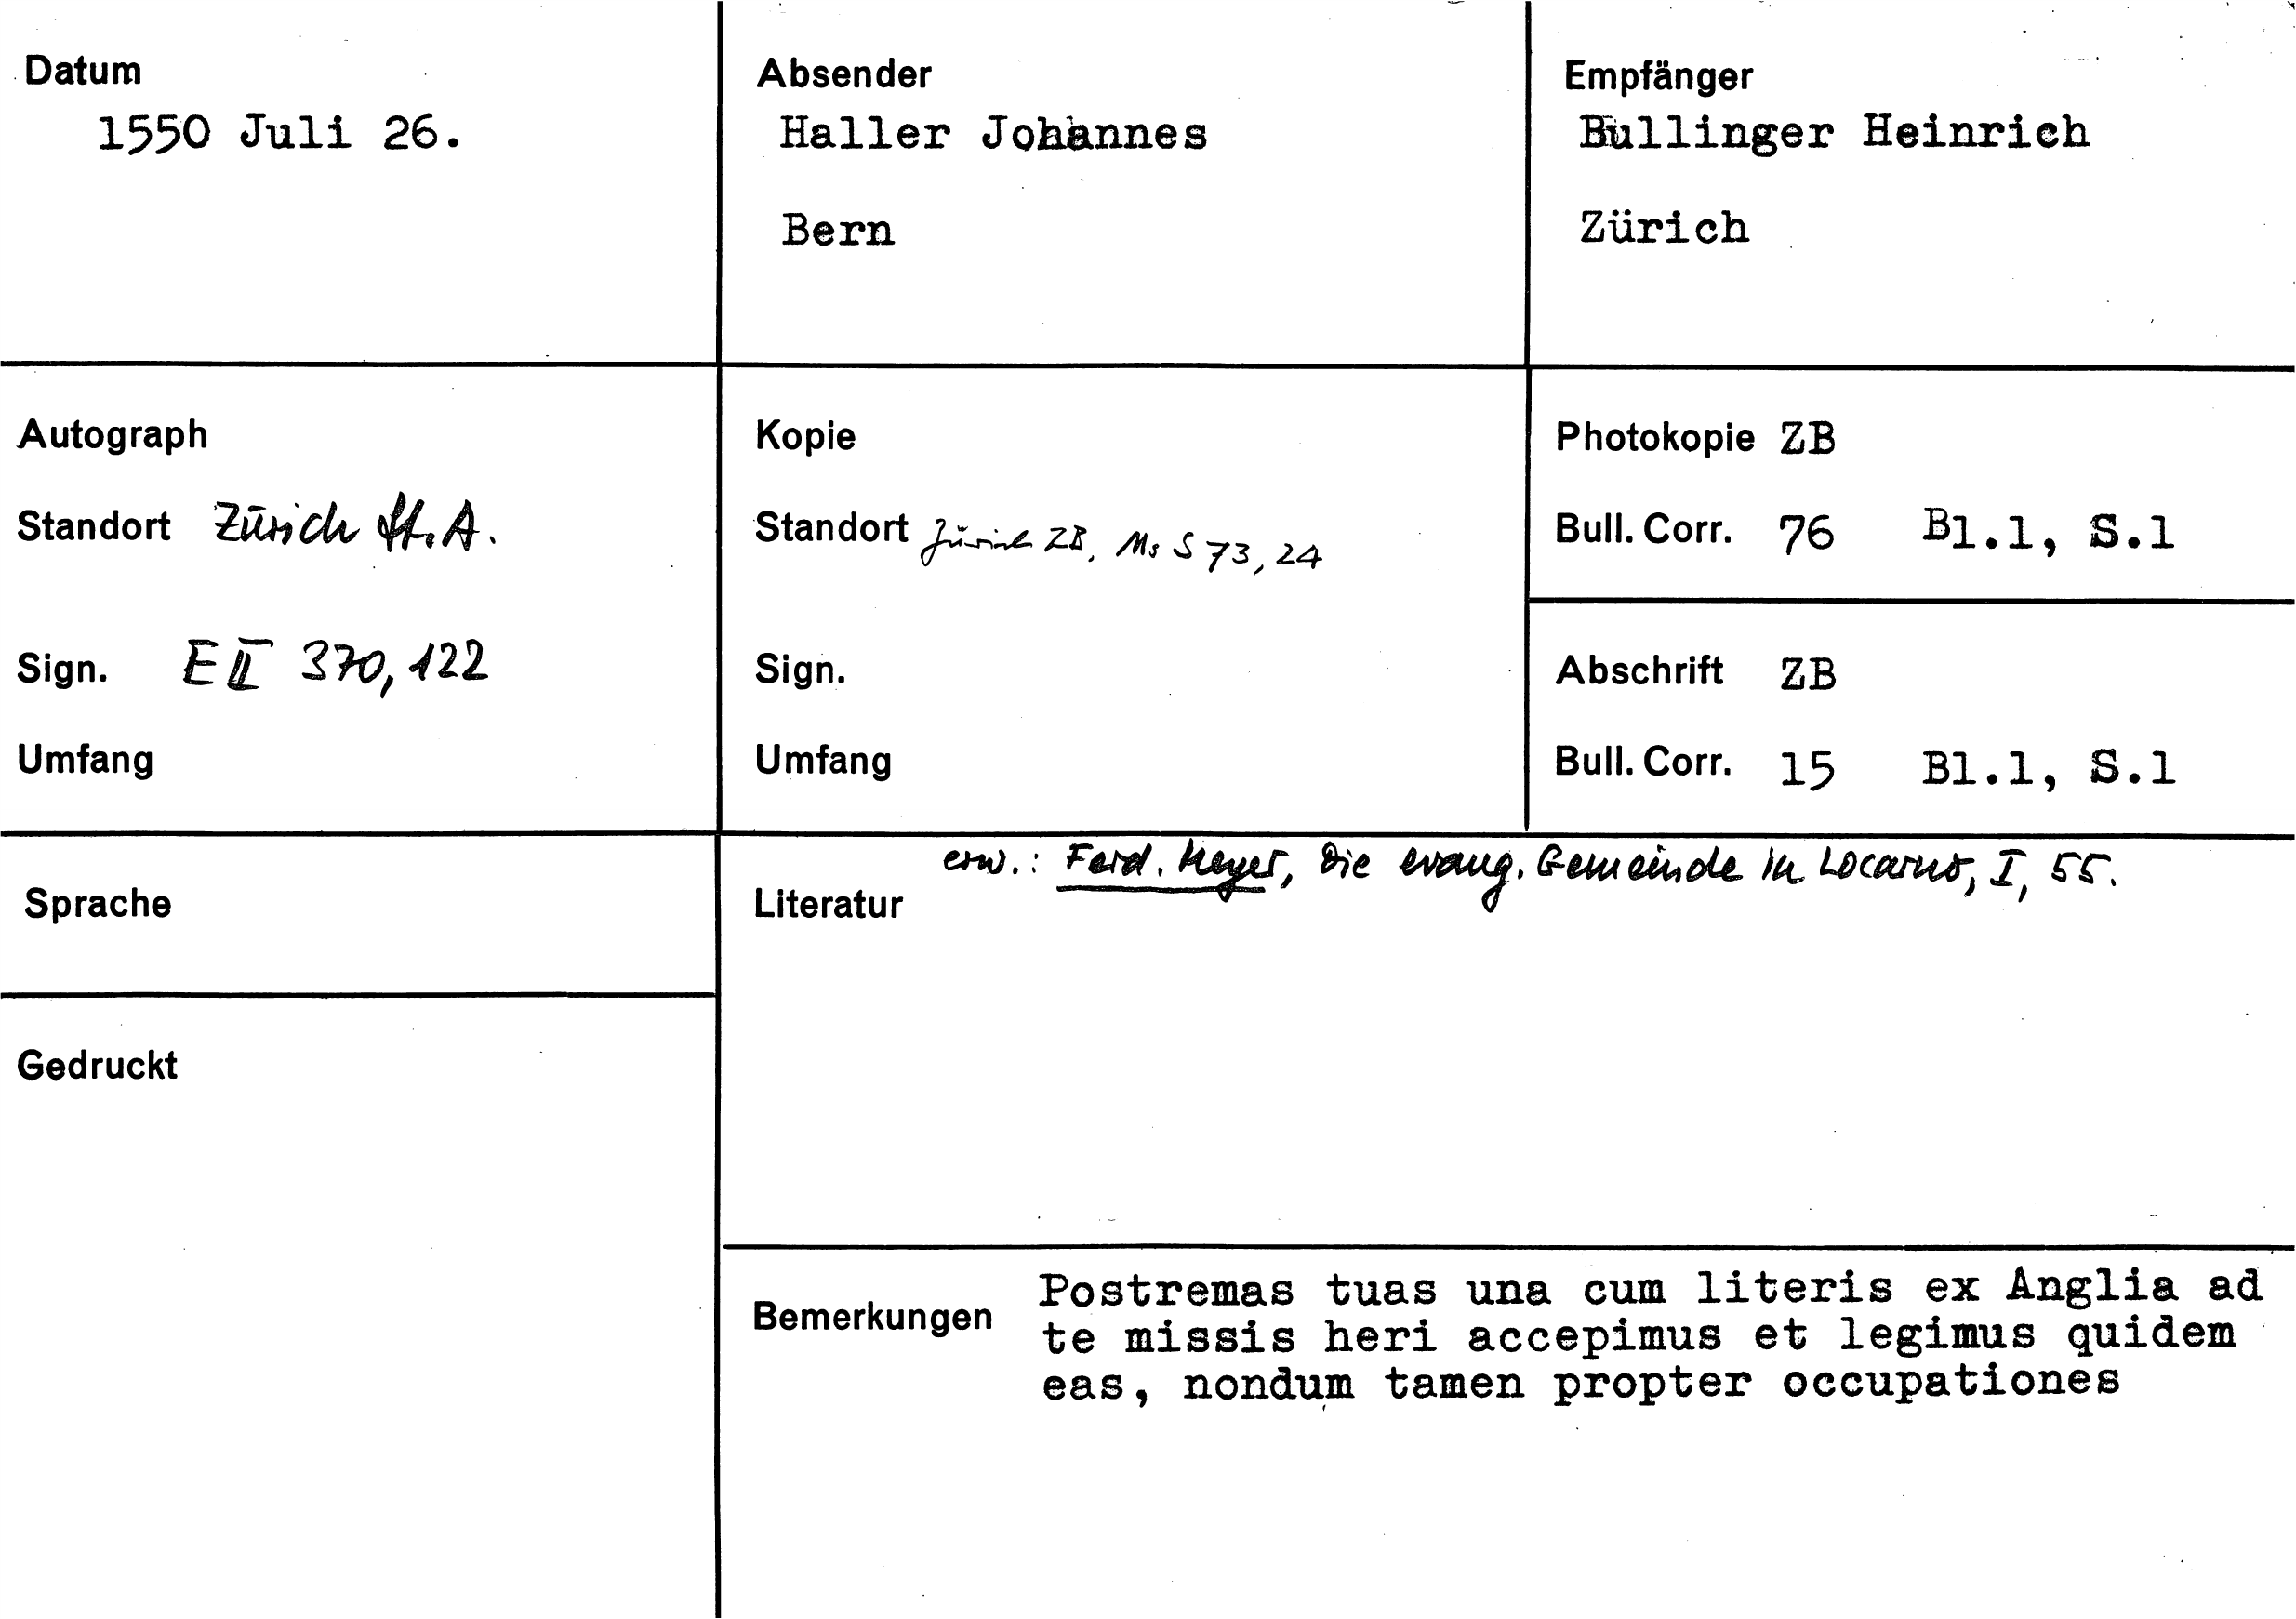 Datum
1550 Juli 26.
Absender
Haller Johannes
Bern
Empfänger
Bullinger Heinrich
Zürich
Autograph
Standort Zürich St.A.
Sign. E II 370, 122
Umfang
Kopie
Standort Zürich ZB, Ms S 73, 24
Sign.
Umfang
Photokopie ZB
Bull. Corr. 76 Bl.1, S.1
Abschrift ZB
Bull. Corr. 15 Bl.1, S.1
Sprache
Gedruckt
erw.: Ferd. Meyer, Die evang. Gemeinde in Locarno, I, 55.
Literatur
Bemerkungen
Postremas tuas una cum literis ex Anglia ad
te missis heri accepimus et legimus quidem
eas, nondum tamen propter occupationes